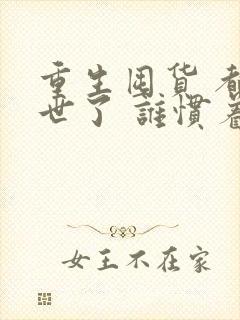 重生囤货 都
世了 誰慣着
女王不在家